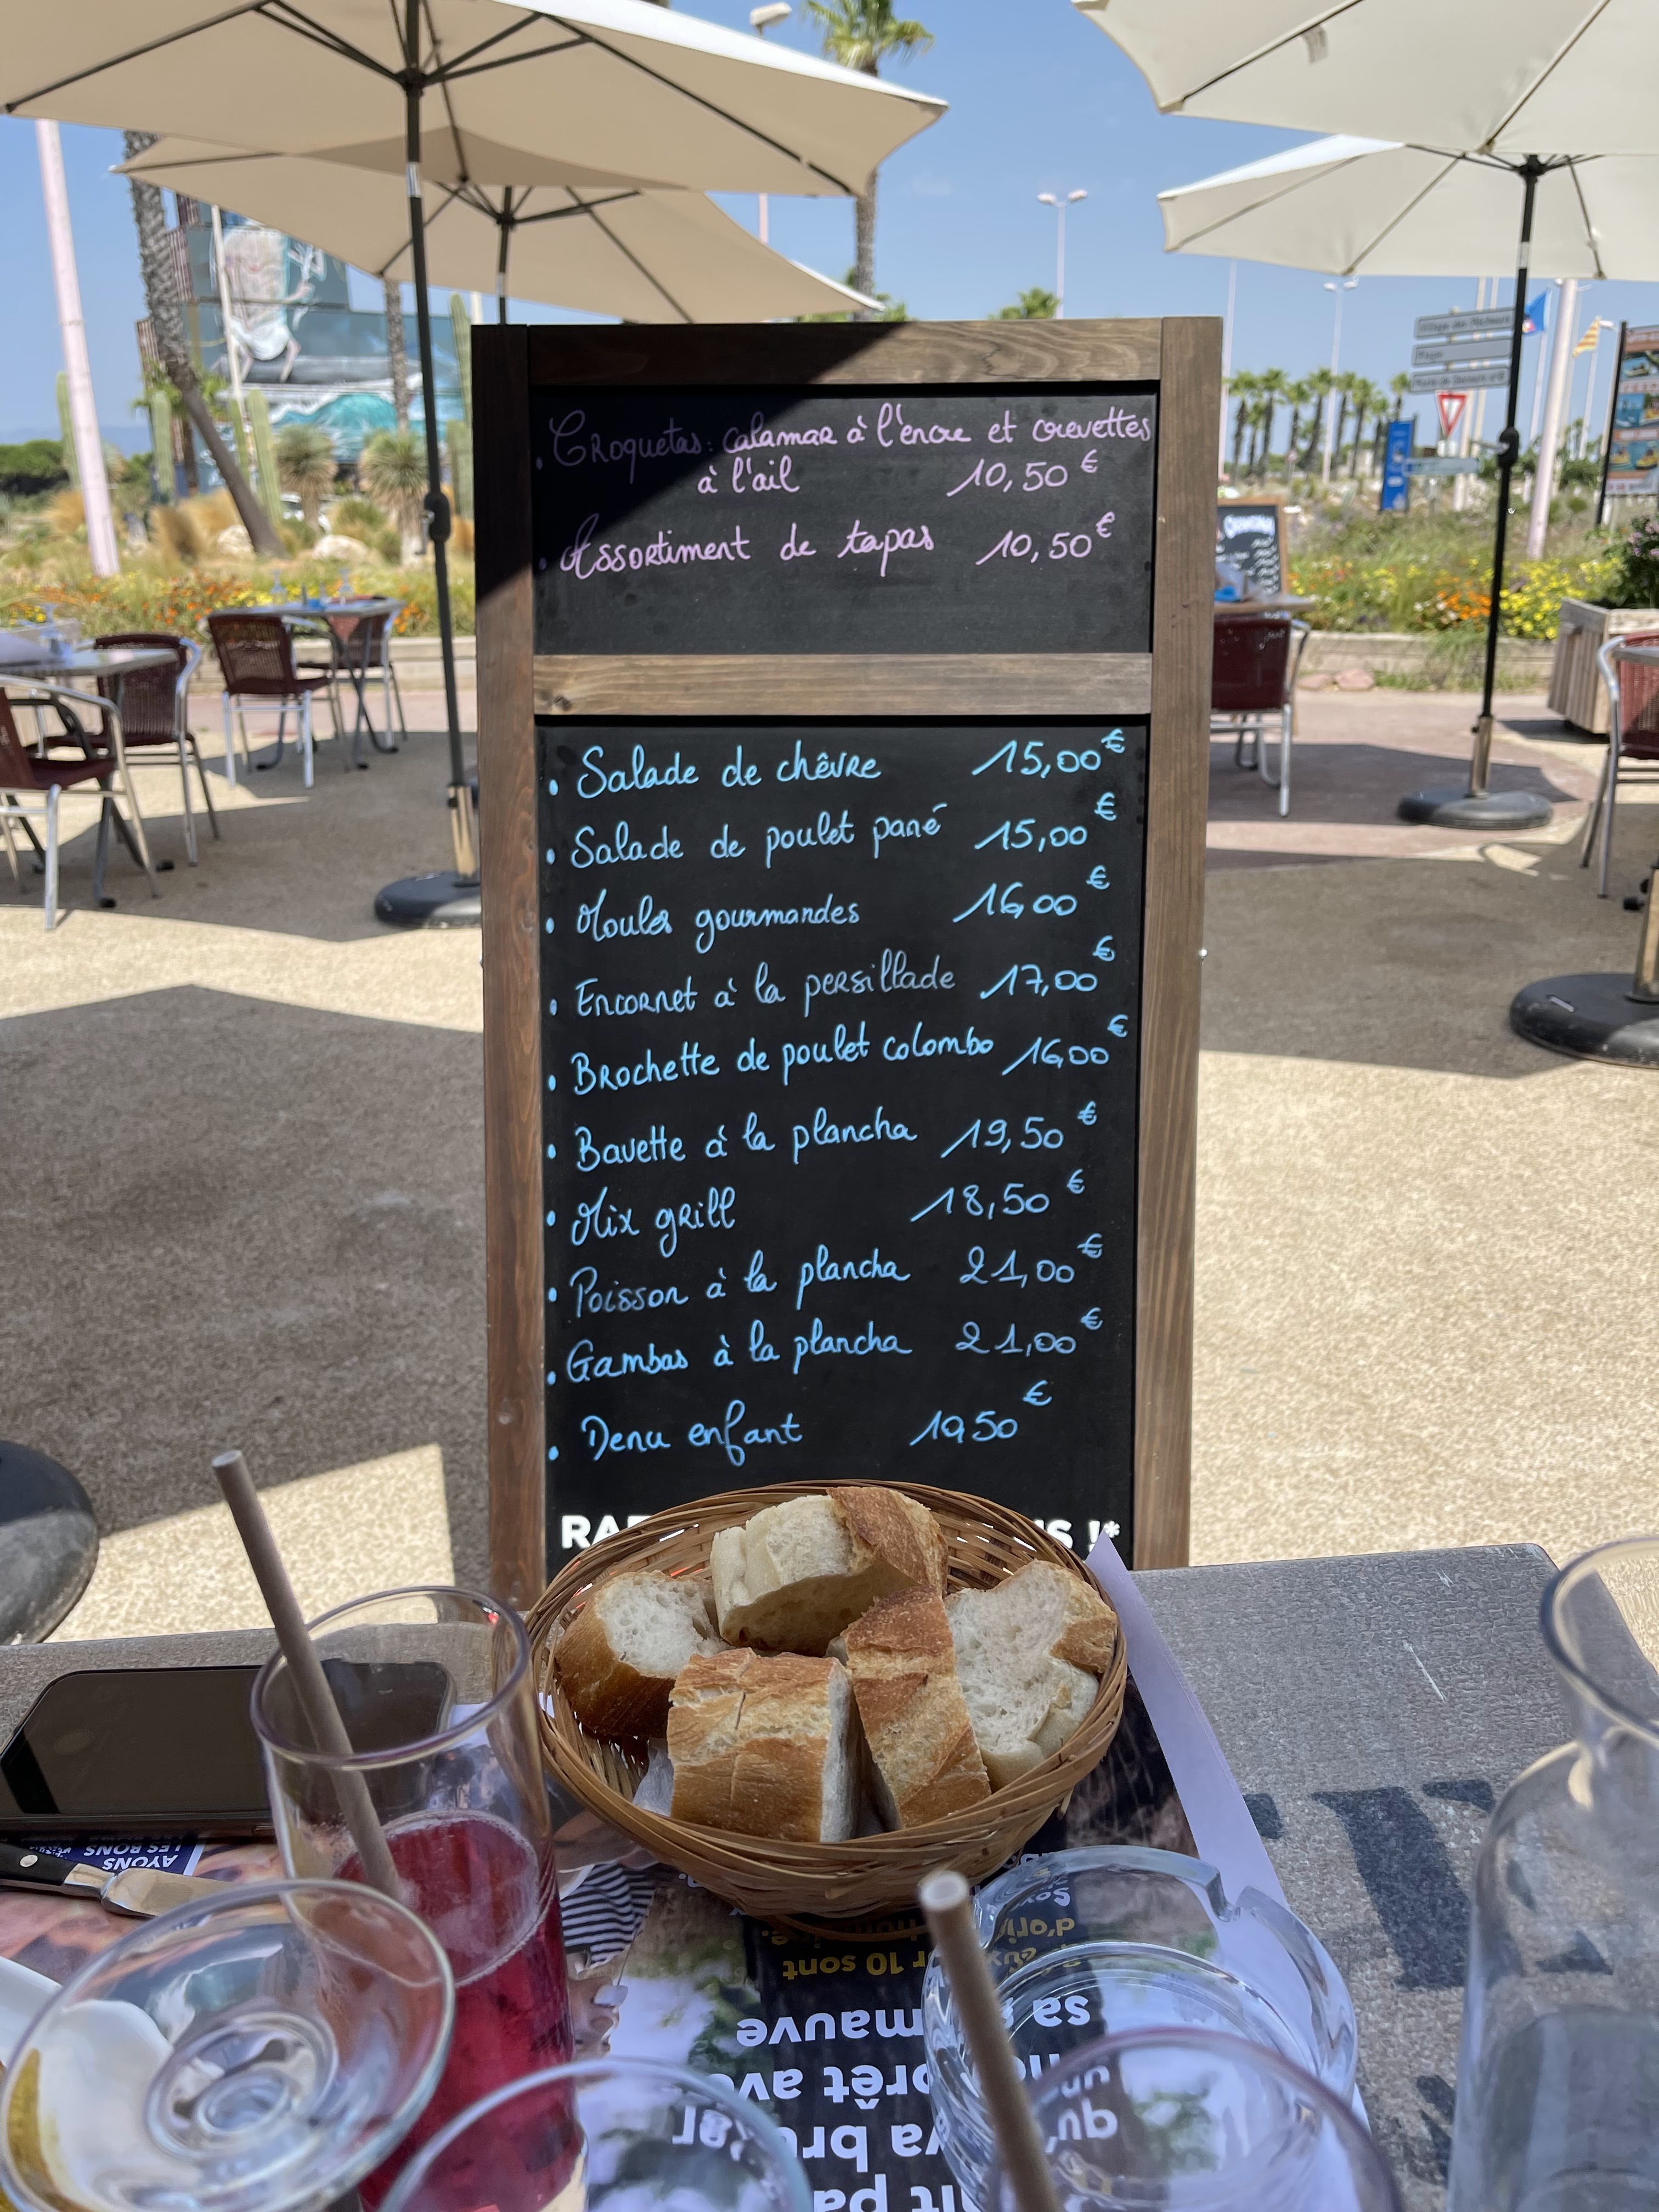 Village des Pêcheurs
Plage
. Croquetas : calamar à l'encre et crevettes
à l'ail 10,50€
. Assortiment de tapas 10,50€
. Salade de chêvre 15,00€
. Salade de poulet pané 15,00€
. Moules gourmandes 16,00€
. Encornet à la persillade 17,00€
. Brochette de poulet colombo 16,00€
. Bavette à la plancha 19,50€
. Mix grill 18,50€
. Poisson à la plancha 21,00€
. Gambas à la plancha 21,00€
. Menu enfant 10,50€
!*
AYONS
LES BONS
r 10 sont
sa
mauve